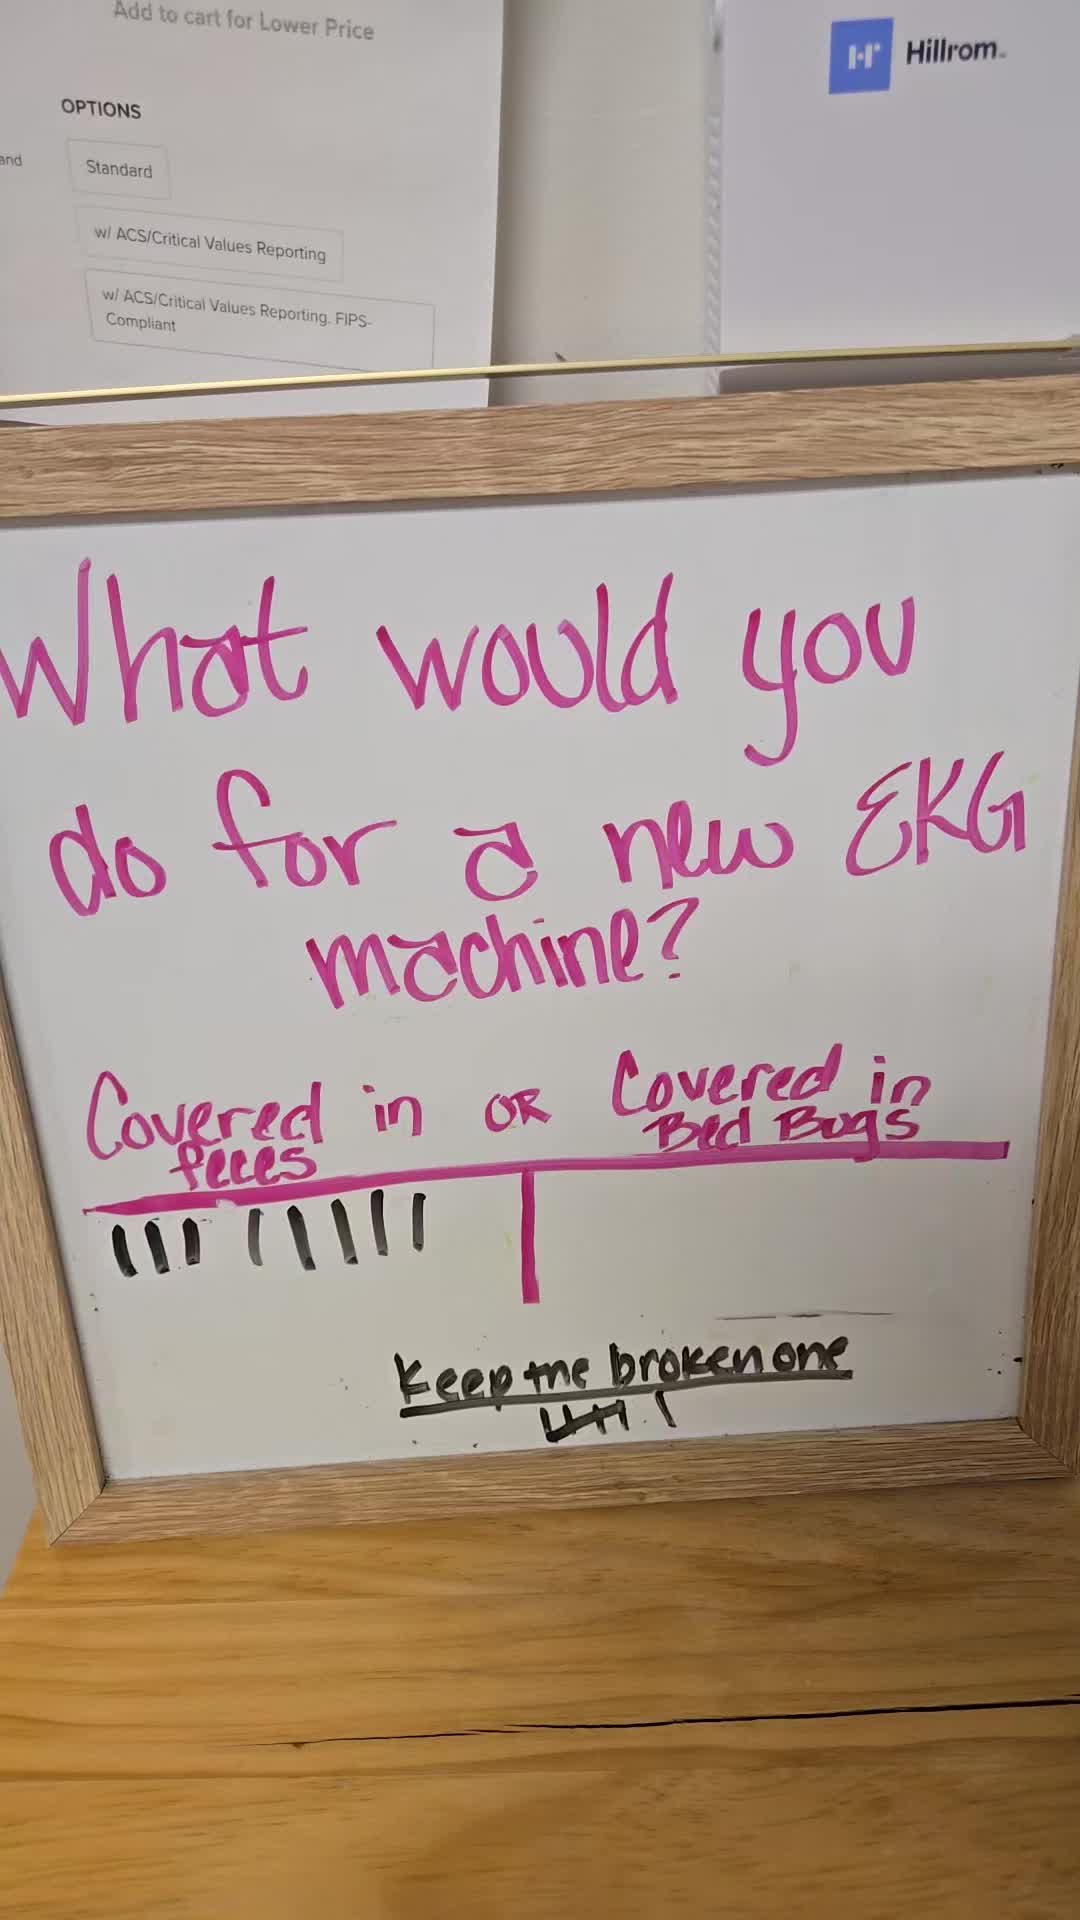 Add to cart for Lower Price
OPTIONS
and
Standard
w/ ACS/Critical Values Reporting
w/ ACS/Critical Values Reporting. FIPS-
Compliant
Hillrom
What would you
do for a new EKG
machine?
Covered in OR Covered in
feces Bed Bugs
Keep the broken one